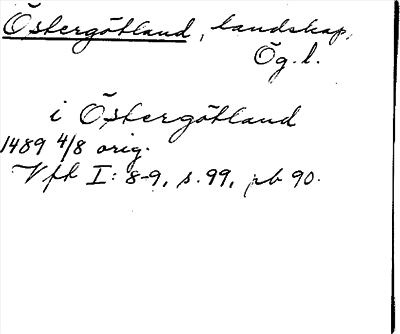 Östergötland, landskap.
Ög. l.
i Östergötland
1489 4/8 orig.
Vfk I: 8-9, s. 99, rb 90.